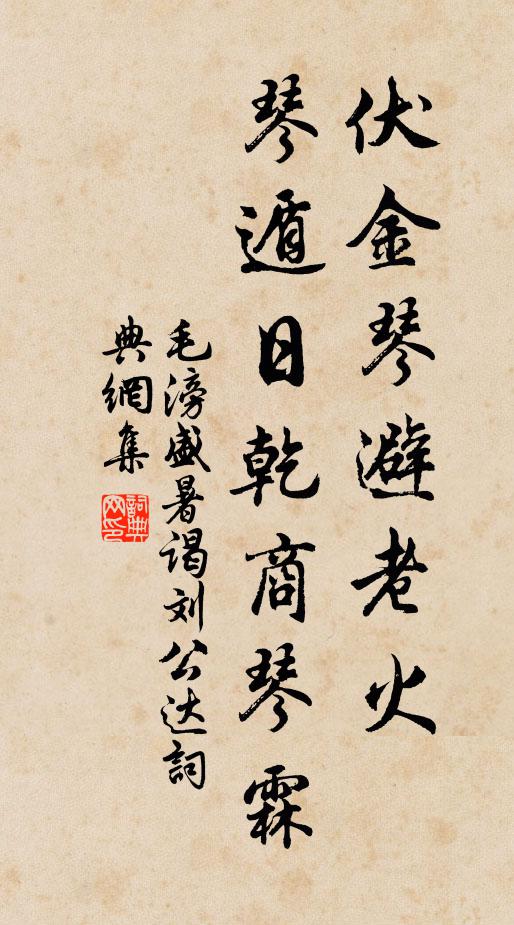 伏金琴避老火
琴遁日乾商琴霖
毛滂盛暑谒刘公达詞
典網集
詞典
网印